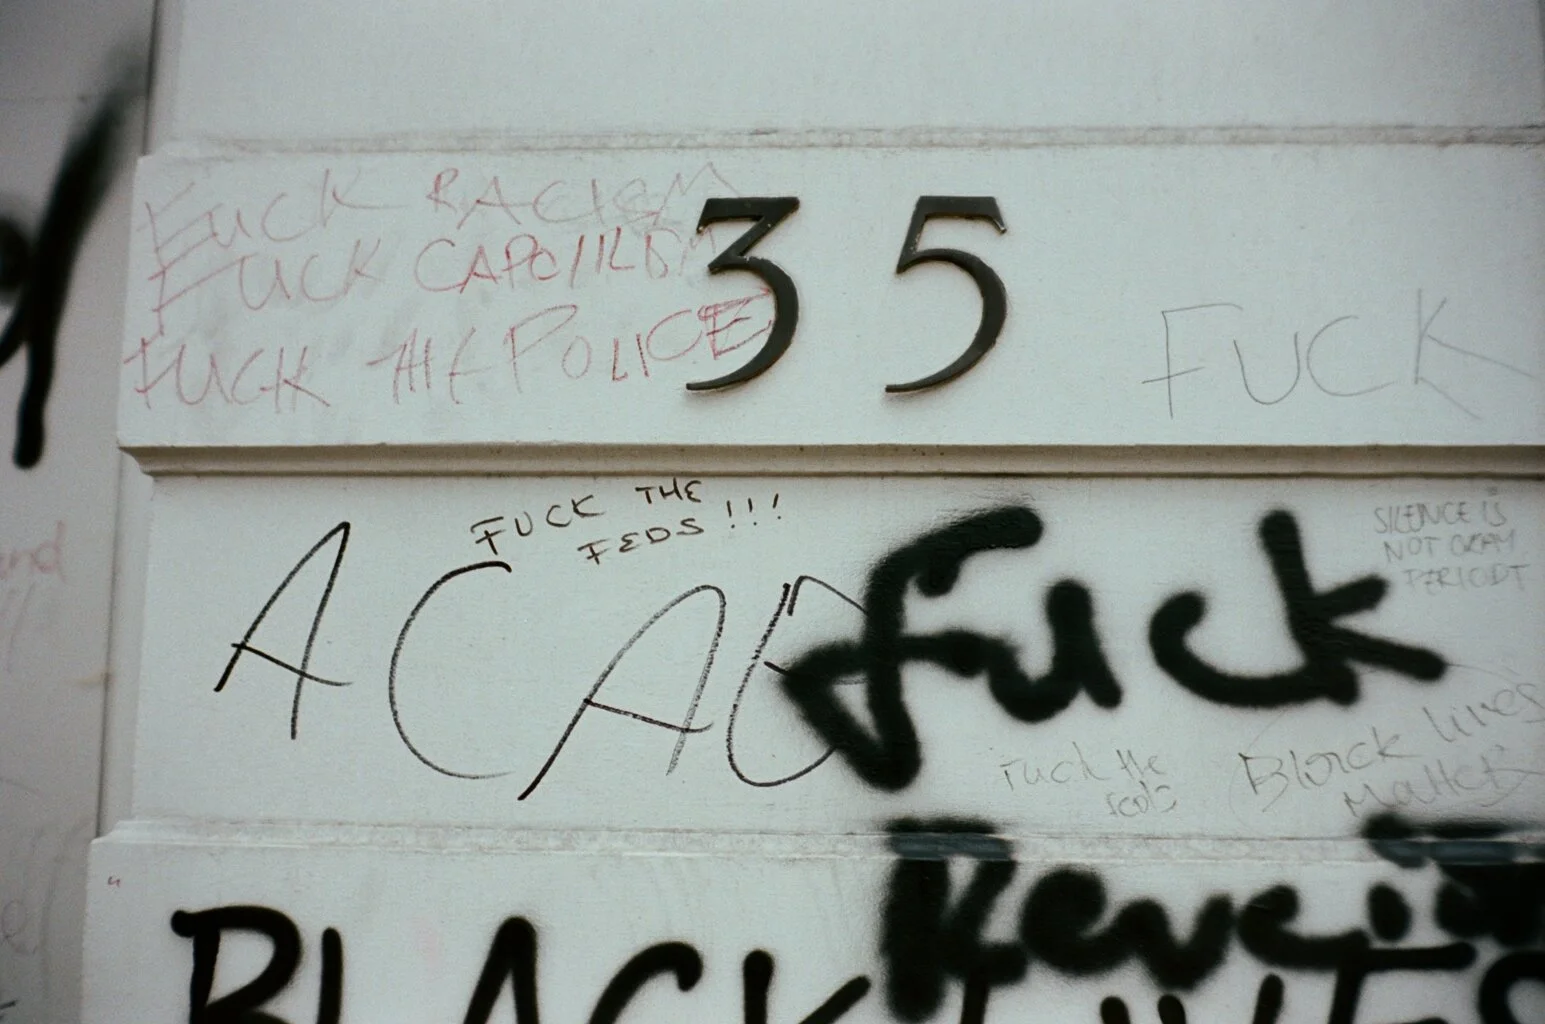 FUCK RACISM
FUCK
FUCK THE POLICE
35
FUCK
FUCK THE
FEDS!!!
ACAB
Fuck
SILENCE IS
NOT OKAY
PERIODT
Fuck the
feds
Black lives
Matter
BLACK LIVES